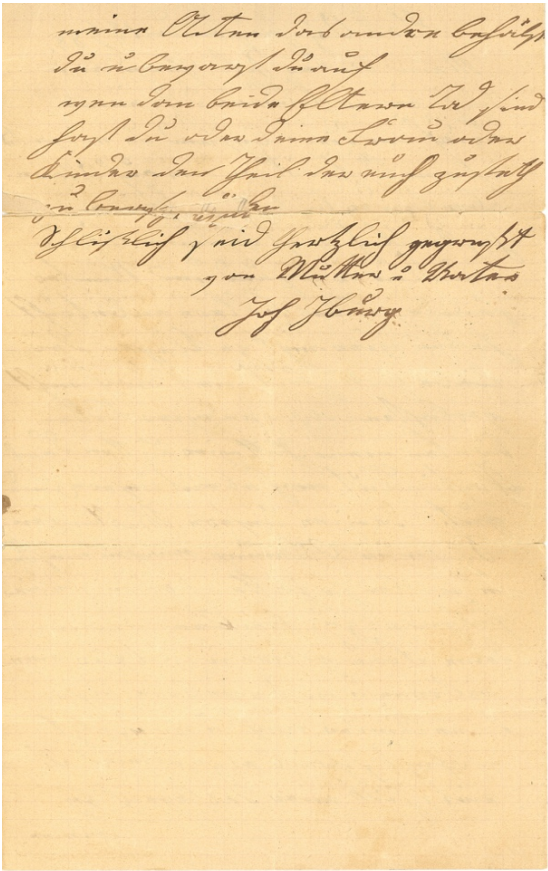 meine Acten das andre behälst
du u bewarst du auf
wen dan beide Eltern Tod sind
hast du oder deine Frau oder
Kinder den Theil der euch zusteth
zu
Schlißlich seid Hertzlich gegrüßt
von Mutter u Vater
Joh Iburg